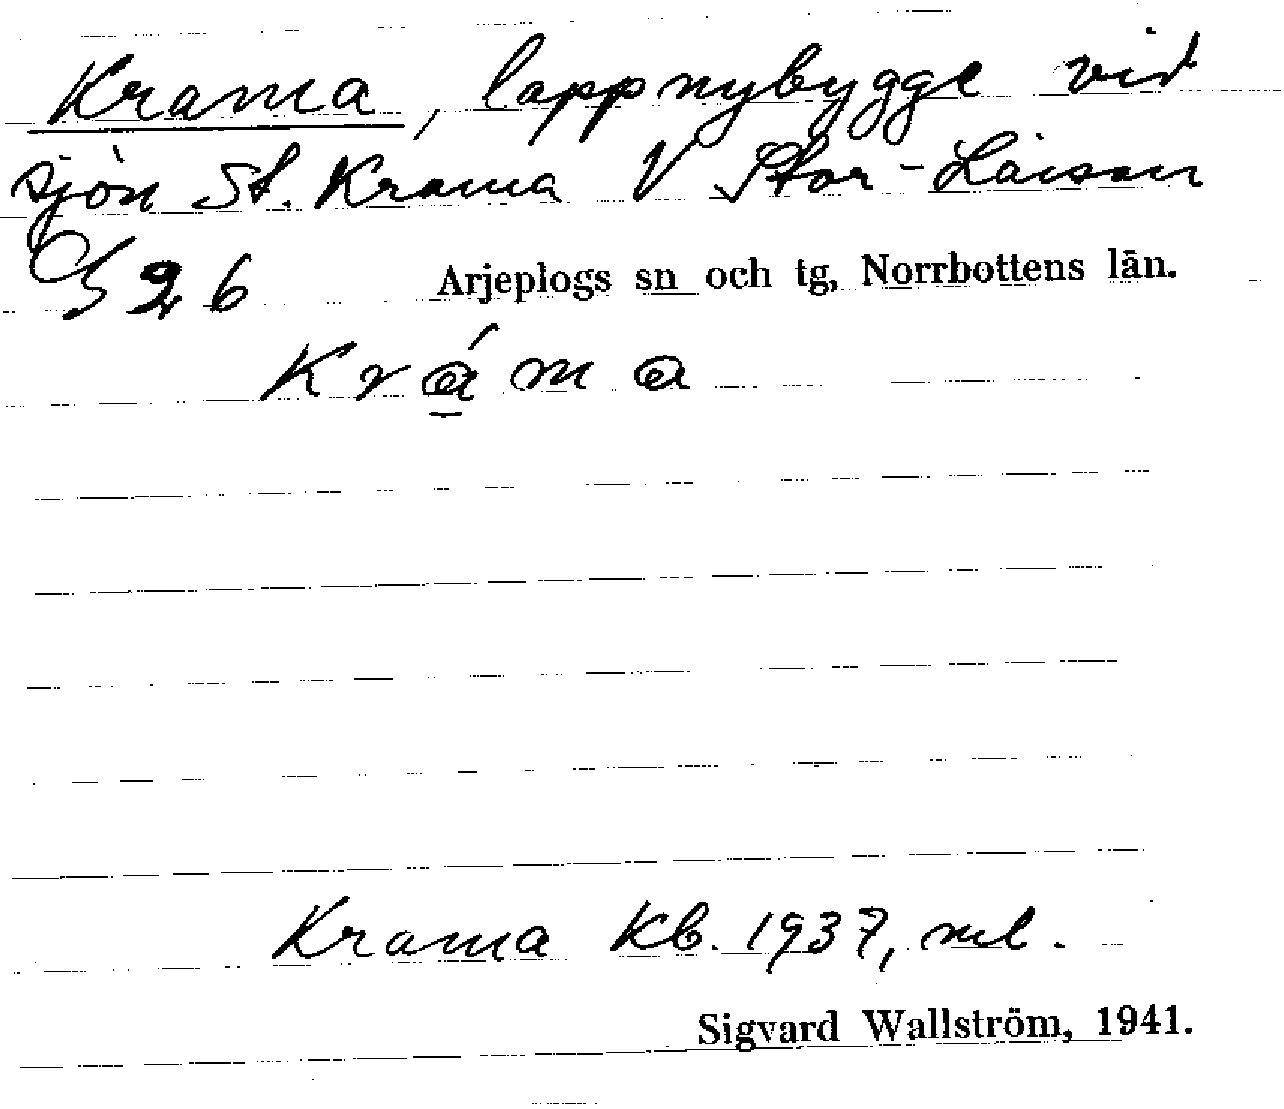 Krama, lappnybygge vid
sjön St. Krama V Stor-Laisan
26 Arjeplogs sn och tg, Norrbottens län.
Kráma
Krama Kb. 1937, ml.
Sigvard Wallström, 1941.